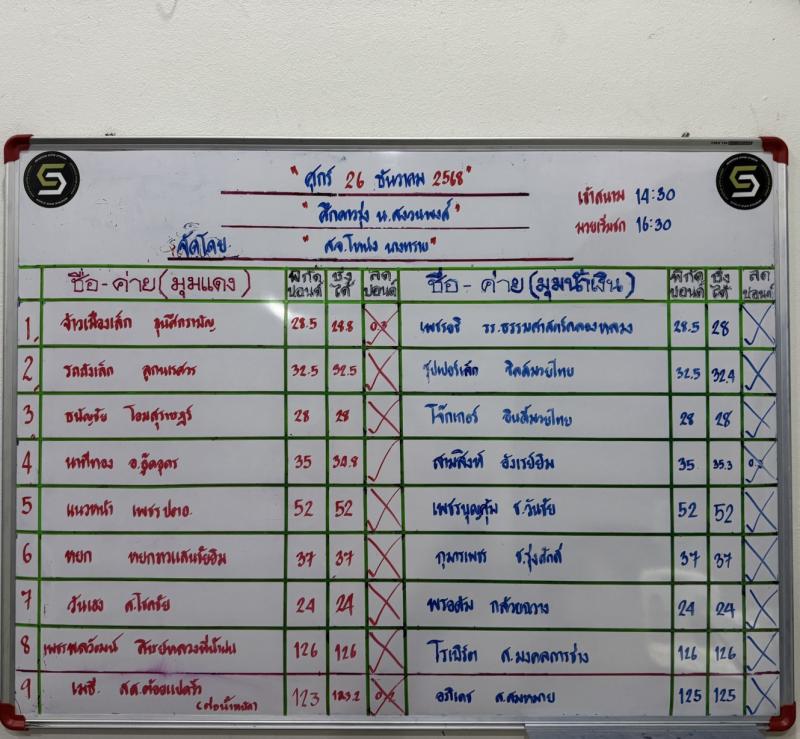 " ศุกร์ 26 ธันวาคม 2568 "
" ศึกดาวรุ่ง น.สงวนพงค์ "
จัดโดย " ส.จ.โหน่ง นางทราย "
เข้าสนาม 14:30
มวยเริ่มชก 16:30
ชื่อ - ค่าย (มุมแดง) พิกัดปอนด์ ชั่งได้ ลดปอนด์ ชื่อ - ค่าย (มุมน้ำเงิน) พิกัดปอนด์ ชั่งได้ ลดปอนด์
1. จ้าวเมืองเล็ก 28.5 28.8 0.3 เพชรอธิ รร.ธรรมศาสตร์คลองหลวง 28.5 28
2. รถถังเล็ก ลูกนเรศวร 32.5 32.5 ซุปเปอร์เล็ก มวยไทย 32.5 32.4
3 ธนัญชัย โอมสุราษฎร์ 28 28 โจ๊กเกอร์ มวยไทย 28 28
4 นาทีทอง อ.อู๊ดอุดร 35 34.8 สามสิงห์ อังเรย์ยิม 35 35.3
5 แนวหน้า เพชร 52 52 เพชรบุญคุ้ม ช.วันชัย 52 52
6 หยก หยกขาวแสนชัยยิม 37 37 กุมารเพชร ช.รุ่งศักดิ์ 37 37
7 วันเฮง ส.โชคชัย 24 24 พรอดัม กล้วยขวาง 24 24
8 เพชรพลวัฒน์ ศิษย์หลวงพี่น้ำฝน 126 126 โรเบิร์ต ส.มงคลการช่าง 126 126
9 เมธี สส.ต้อยแปดริ้ว 123 123.2 0.2 อภิเดช ส.สมหมาย 125 125
(ต่อน้ำหนัก)